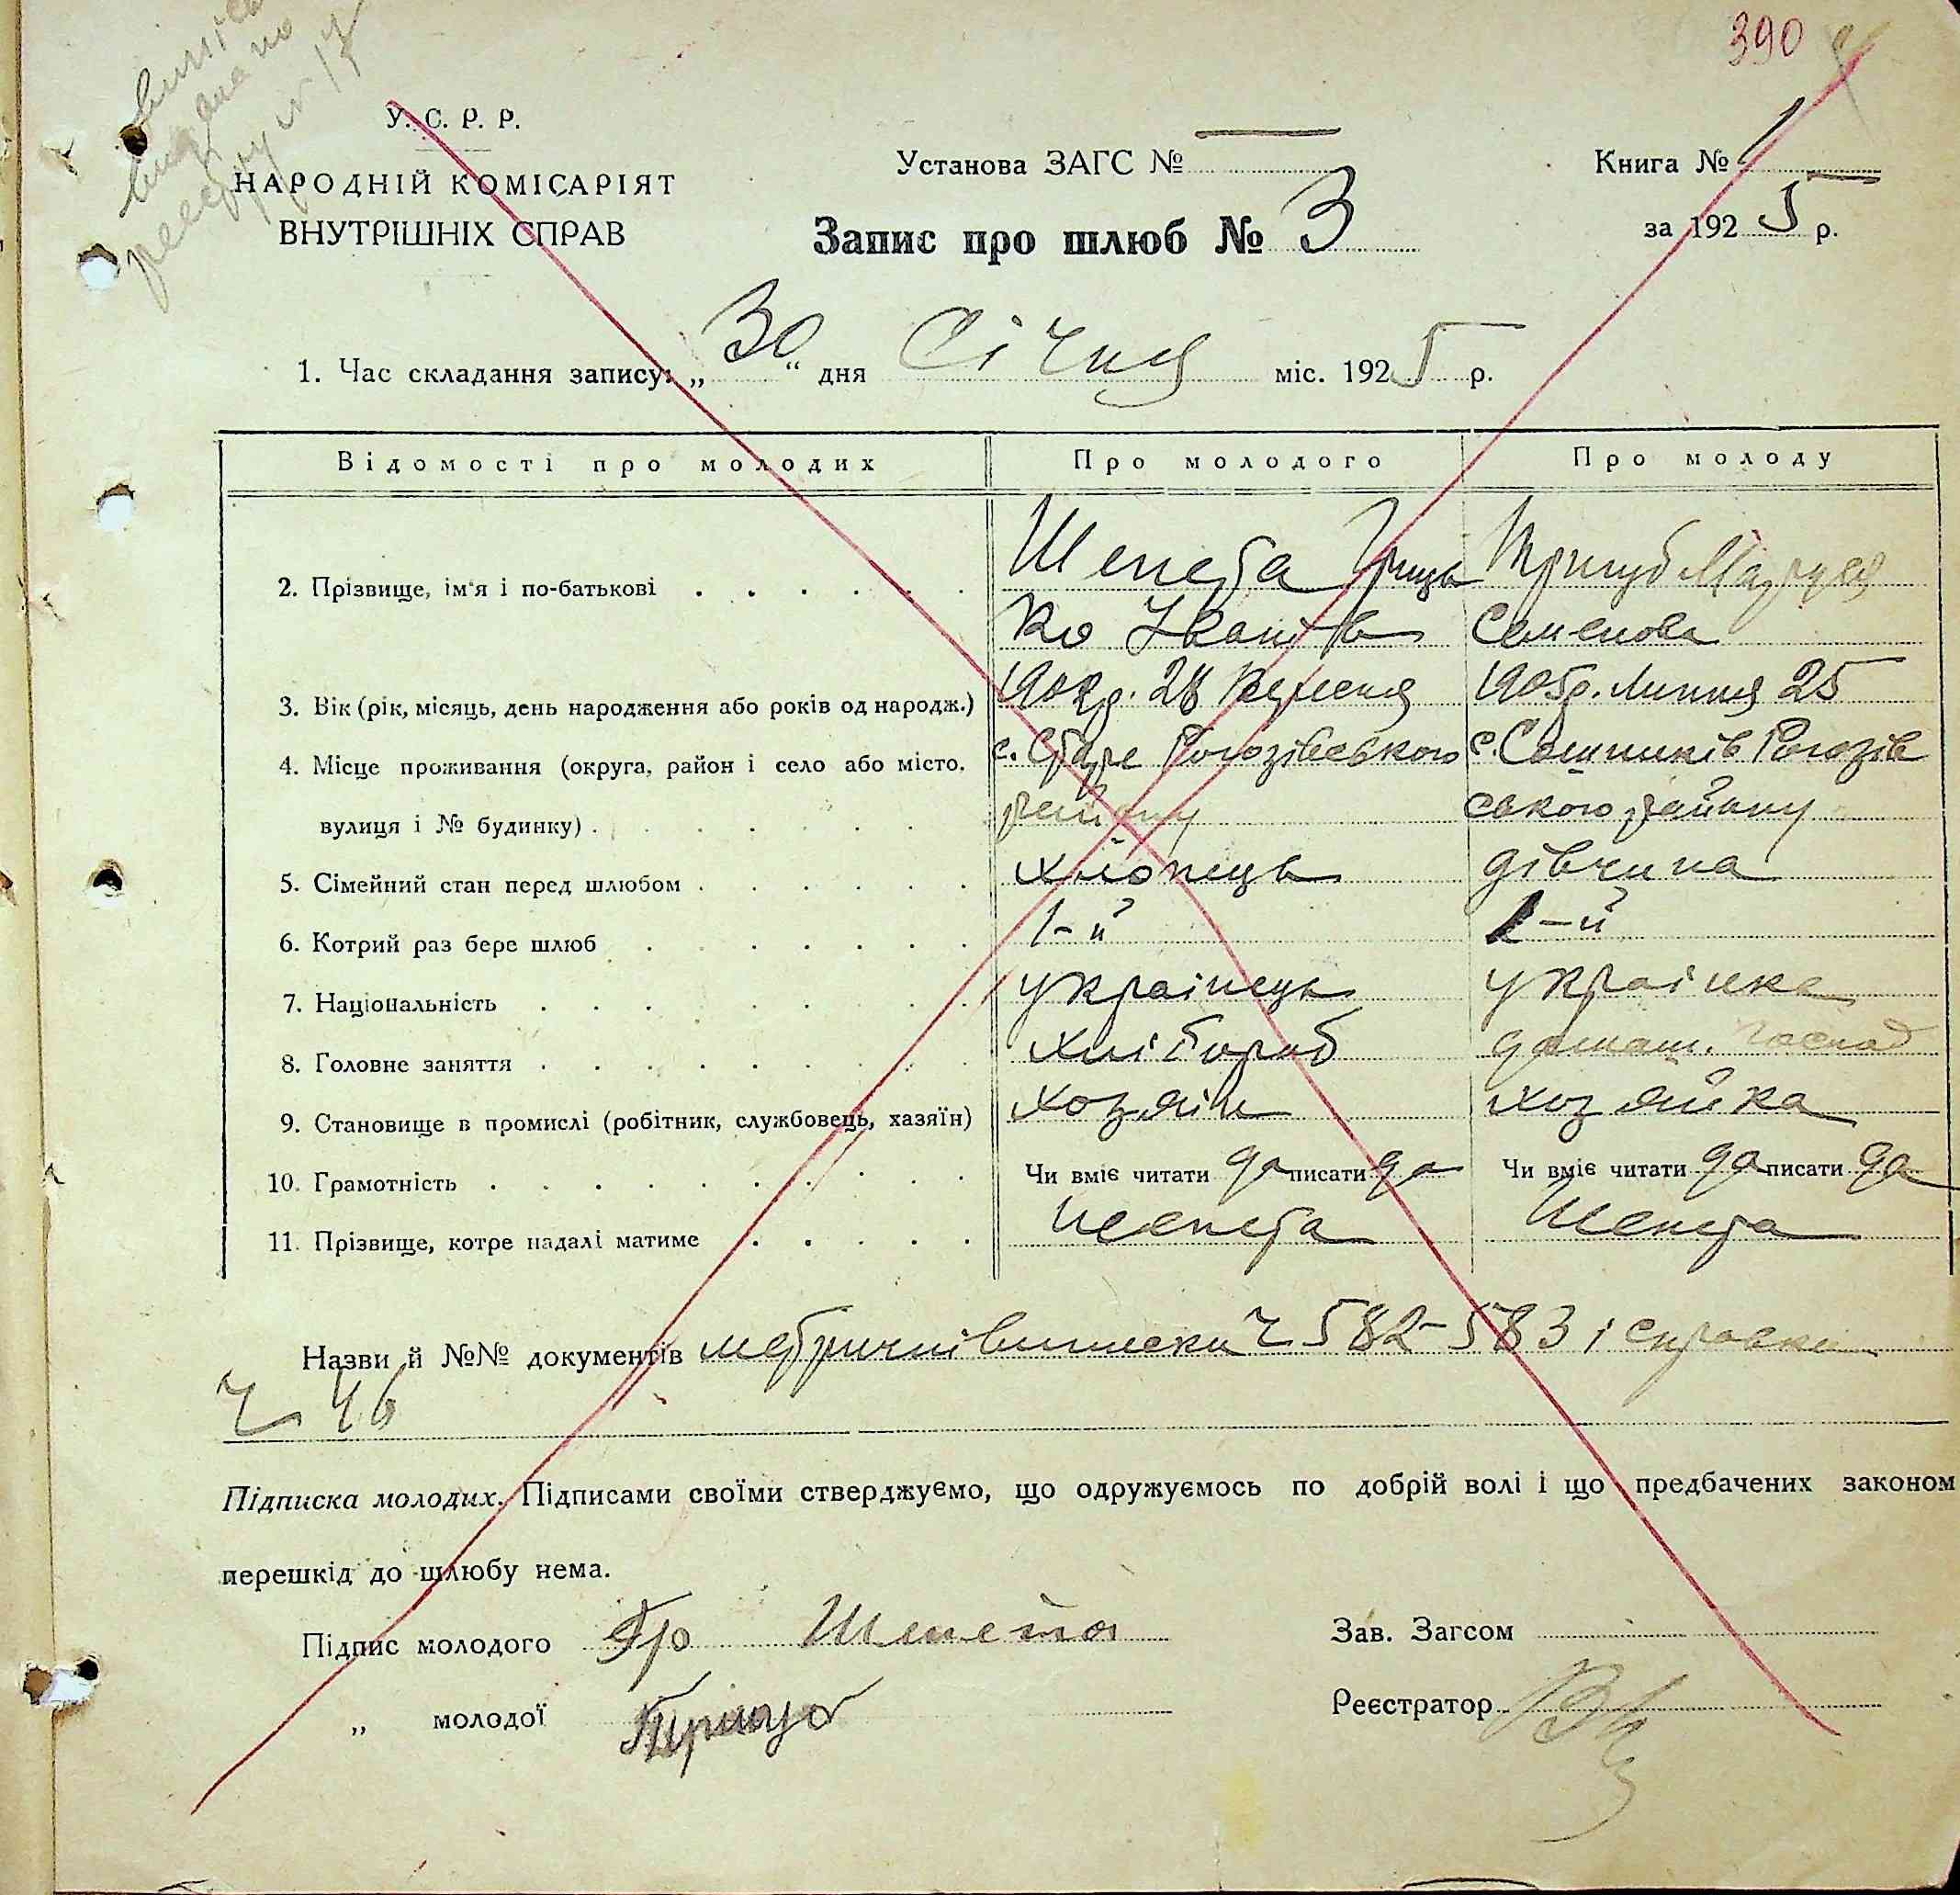 390
У. С. Р. Р.
НАРОДНІЙ КОМІСАРІЯТ
ВНУТРІШНІХ СПРАВ
Установа ЗАГС № —
Книга № 1
Запис про шлюб № 3
за 1925 р.
1. Час складання запису: „30“ дня Січня міс. 1925 р.
Відомості про молодих Про молодого Про молоду
2. Прізвище, ім'я і по-батькові Шепета Гриць Пригуб
ко Іванів Семенова
3. Вік (рік, місяць, день народження або років од народж.) 1902р. 28 Вересня 1905р. Липня 25
4. Місце проживання (округа, район і село або місто, с. Старе Рогозівського с. Сошників Рогозів
вулиця і № будинку) району ського району
5. Сімейний стан перед шлюбом хлопець дівчина
6. Котрий раз бере шлюб 1-й 1-й
7. Національність українець українка
8. Головне заняття хлібороб домаш. господ
9. Становище в промислі (робітник, службовець, хазяїн) хозяін хозяйка
10. Грамотність Чи вміє читати да писати да Чи вміє читати да писати да
11. Прізвище, котре надалі матиме Шепета Шепета
Назви й №№ документів метричні виписки Ч 582-583 і справки
Ч 46
Підписка молодих. Підписами своїми стверджуємо, що одружуємось по добрій волі і що предбачених законом
перешкід до шлюбу нема.
Підпис молодого Гр Шепета
Зав. Загсом
„ молодої Пригуб
Реєстратор